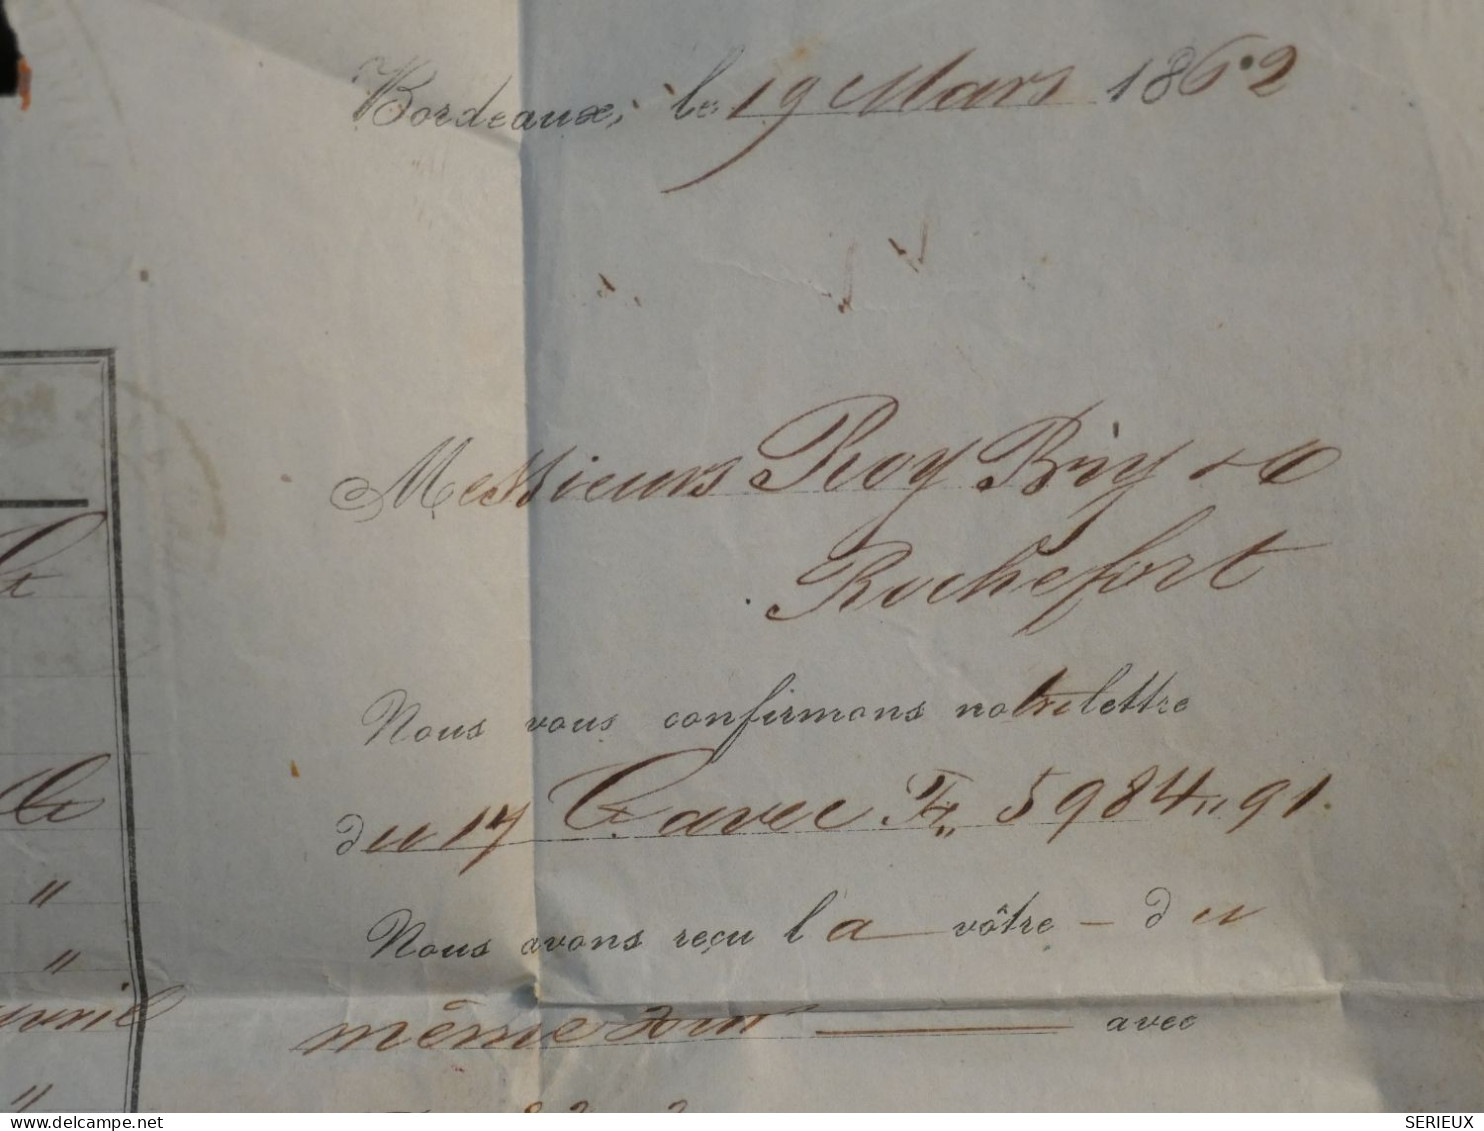 Bordeaux, le 19 Mars 1862
Messieurs Roy Bry & C
Rochefort
Nous vous confirmons notre lettre
du 17 Ct avec Frs 5984,,91.
Nous avons reçu la vôtre - du
même jour avec
Ct
Ct
"
"
avril
"
SERIEUX